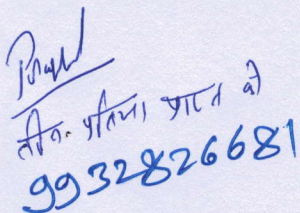 तीन प्रतियां प्राप्त की
9932826681